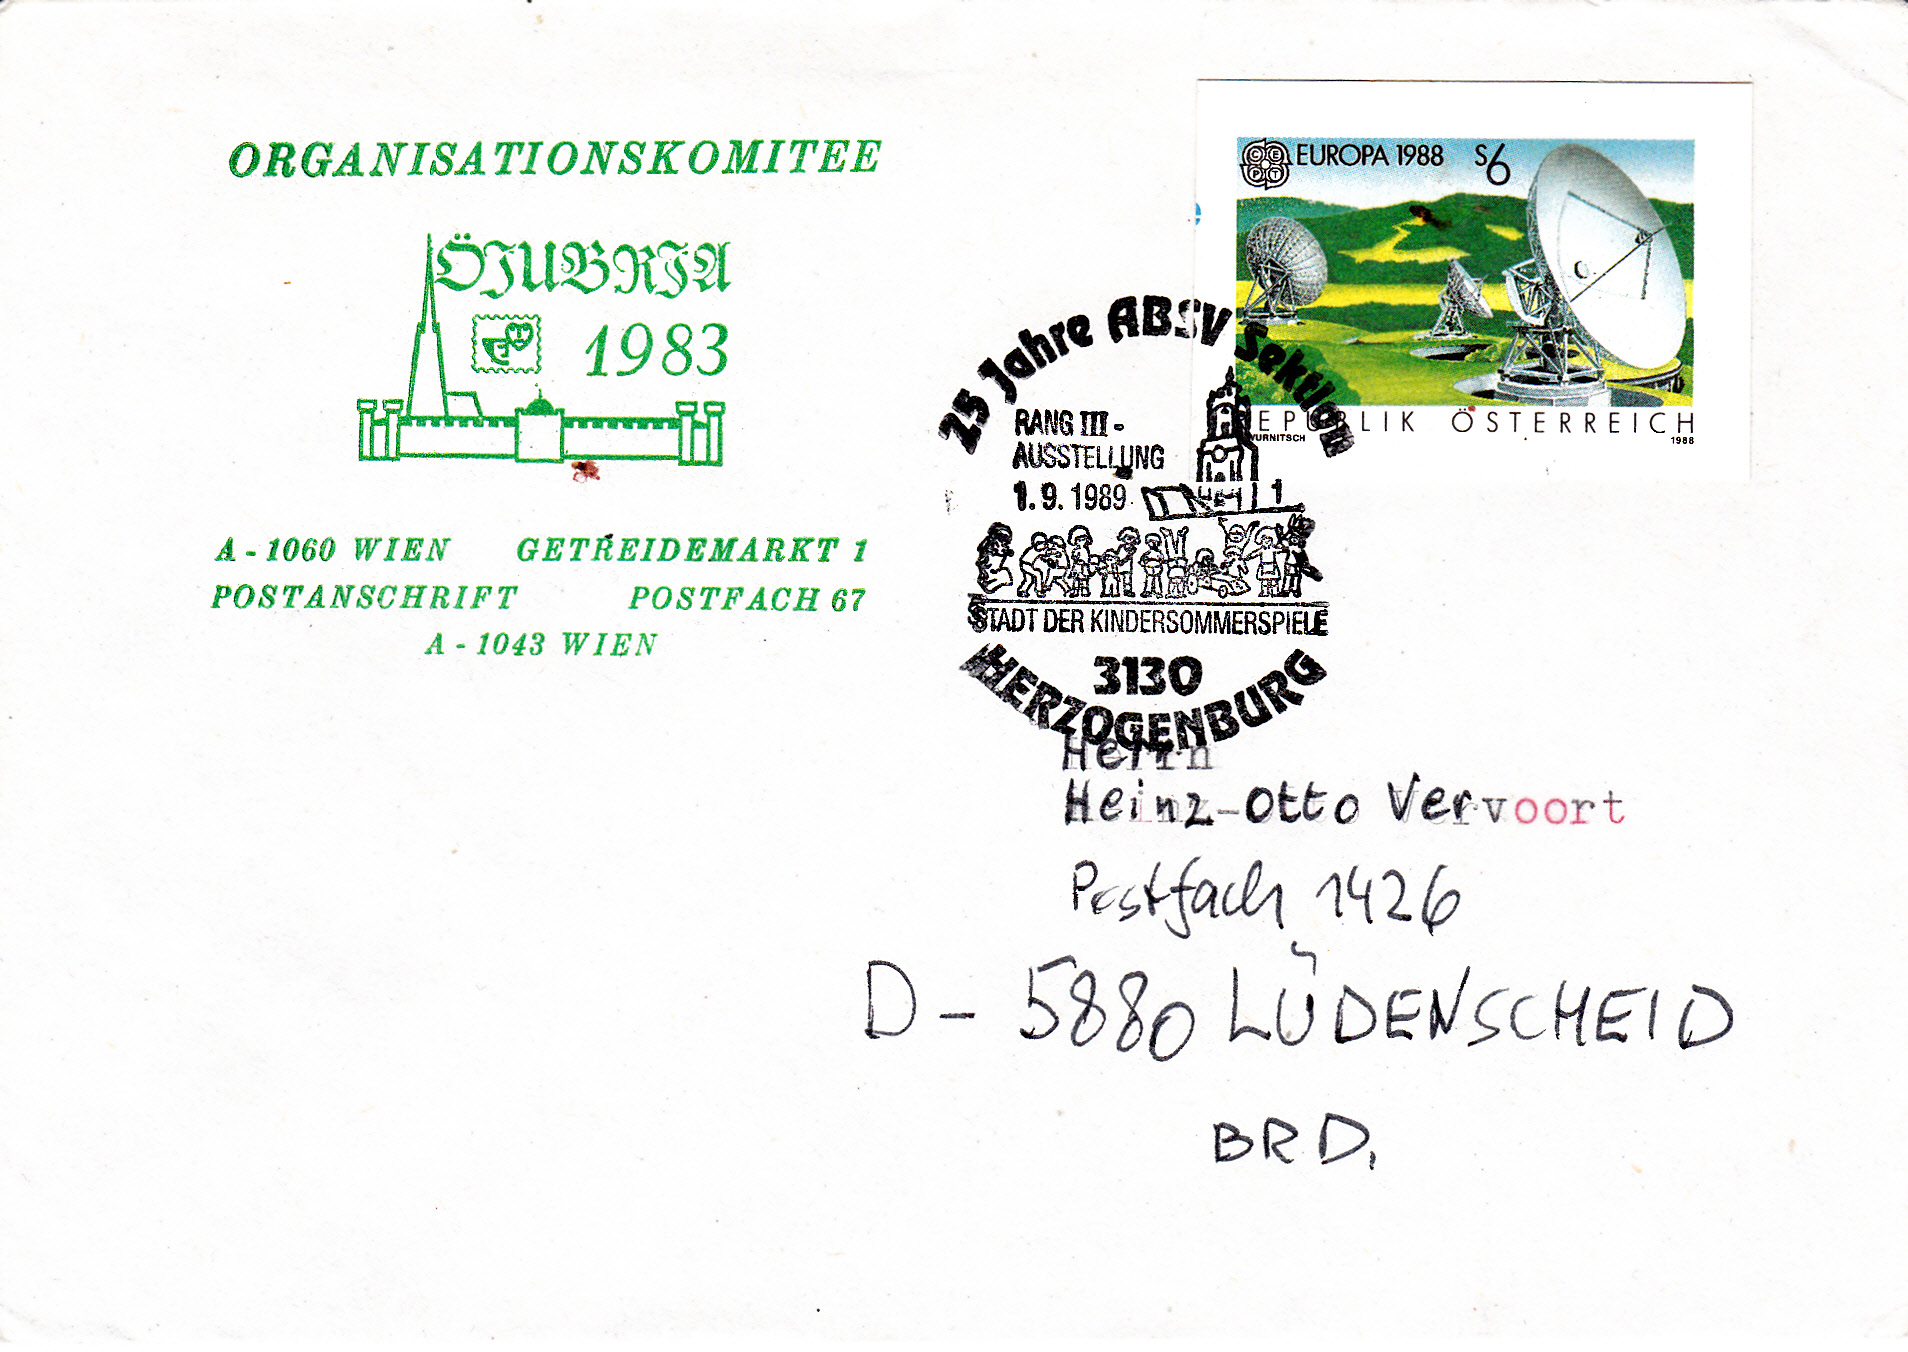 ORGANISATIONSKOMITEE
ÖJUBRIA
1983
A - 1060 WIEN GETREIDEMARKT 1
POSTANSCHRIFT POSTFACH 67
A - 1043 WIEN
CEPT EUROPA 1988 S6
REPUBLIK ÖSTERREICH
1988
25 Jahre ABSV Sektion
RANG III -
AUSSTELLUNG
1.9.1989
1
STADT DER KINDERSOMMERSPIELE
3130
HERZOGENBURG
Herrn
Heinz-Otto Vervoort
Postfach 1426
D - 5880 LÜDENSCHEID
BRD.